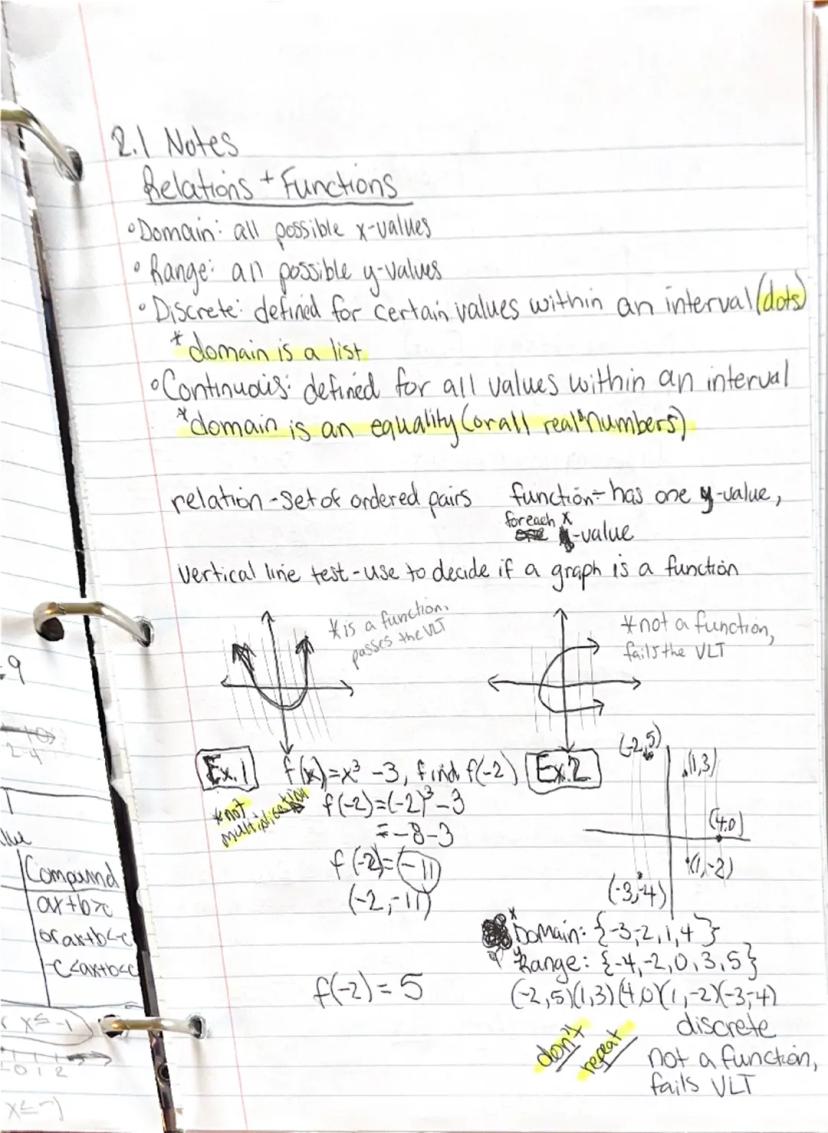 2.1 Notes
Relations + Functions
•Domain: all possible x-values
•Range: all possible y-values
•Discrete: defined for certain values within an interval (dots)
*domain is a list
•Continuous: defined for all values within an interval
*domain is an equality (or all real numbers)
relation - set of ordered pairs
function - has one y-value,
for each x
-value
vertical line test - use to decide if a graph is a function
*is a function,
passes the VLT
*not a function,
fails the VLT
Ex.1 f(x)=x³-3, find f(-2)
*not
multiplication
f(-2)=(-2)³-3
=-8-3
f(-2)=-11
(-2,-11)
f(-2)=5
Ex.2
(-2,5)
(1,3)
(4,0)
(1,-2)
(-3,-4)
*Domain: {-3,-2,1,4}
*Range: {-4,-2,0,3,5}
(-2,5)(1,3)(4,0)(1,-2)(-3,-4)
don't
repeat
discrete
not a function,
fails VLT
-9
2 4
Compound
ax+b>c
or ax+b<-c
-c<ax+b<c
x≤-1
0 1 2